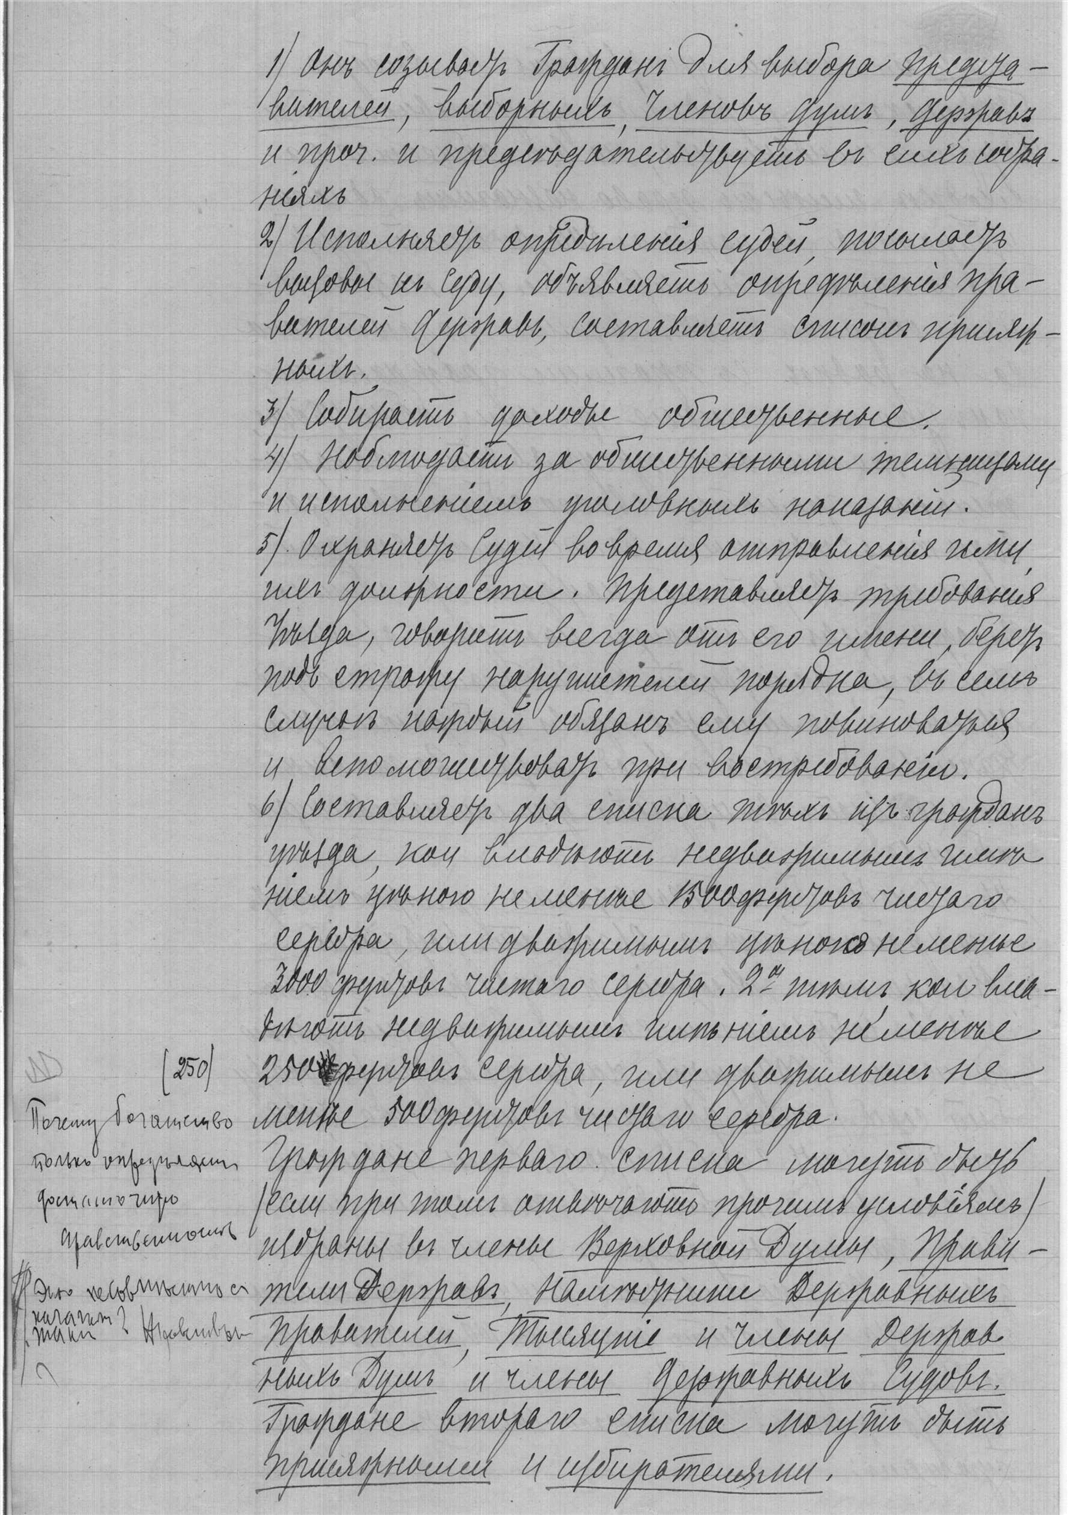 1) Онъ созываетъ Гражданъ для выбора предста-
вителей, выборныхъ, членовъ думъ, державъ
и проч. и предсѣдательствуетъ въ сихъ собра-
ніяхъ
2) Исполняетъ опредѣленія судей, посылаетъ
вызовы къ суду, объявляетъ опредѣленія пра-
вителей державъ, составляетъ списокъ присяж-
ныхъ.
3) Собираетъ доходы общественные.
4) Наблюдаетъ за общественными темницами
и исполненіемъ уголовныхъ наказаній.
5) Охраняетъ судей во время отправленія ими
ихъ должности. Представляетъ требованія
Уѣзда, говоритъ всегда отъ его имени, беретъ
подъ стражу нарушителей порядка, въ семъ
случаѣ каждый обязанъ ему повиноваться
и вспомоществовать при востребованіи.
6) Составляетъ два списка тѣхъ изъ гражданъ
уѣзда, кои владѣютъ недвижимымъ имѣ
ніемъ цѣною не менѣе 1500 фунтовъ чистаго
серебра, или движимымъ цѣною не менѣе
3000 фунтовъ чистаго серебра. 2й тѣхъ, кои вла-
дѣютъ недвижимымъ имѣніемъ не менѣе
250 фунтовъ серебра, или движимымъ не
менѣе 500 фунтовъ чистаго серебра.
Граждане перваго списка могутъ быть
(если при томъ отвѣчаютъ прочимъ условіямъ)
избраны въ члены Верховной Думы, Прави-
тели Державъ, Намѣстники Державныхъ
Правителей, Тысяцкіе и члены Держав
ныхъ Думъ и члены державныхъ Судовъ.
Граждане втораго списка могутъ быть
присяжными и избирателями.
(250)
Почему богатство
только опредѣляетъ
достоинство
нравственность
Это несовмѣстно съ